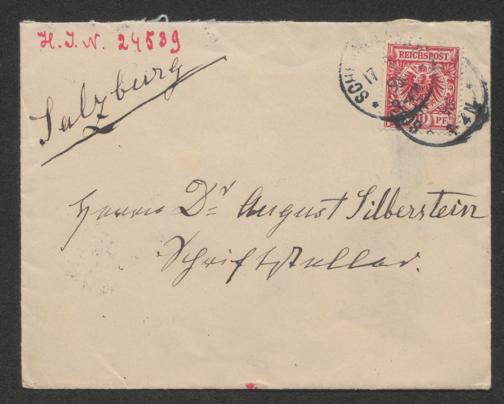 H.I.N. 24539
Salzburg
REICHSPOST
17
10 PF
Herrn Dr August Silberstein
Schriftsteller.